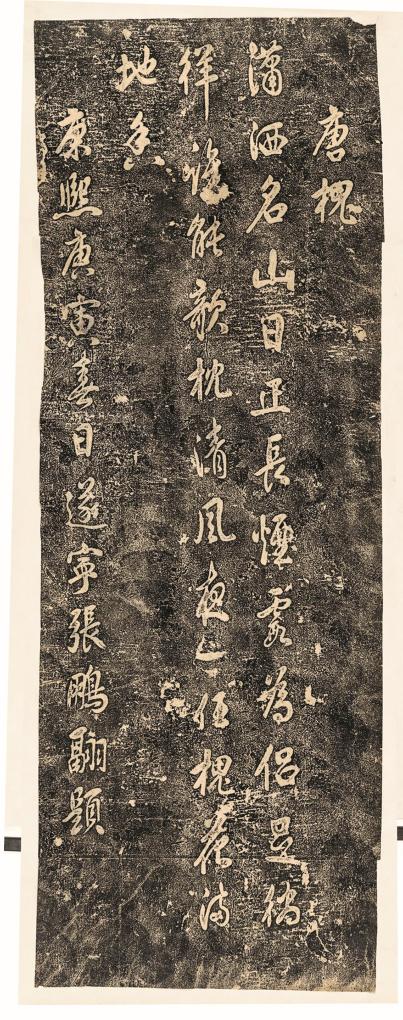 唐槐
潇洒名山日正長煙霞為侣足徜
徉誰能欹枕清風夜一任槐花满
地香
康熙庚寅春日遂寧張鵬翮題